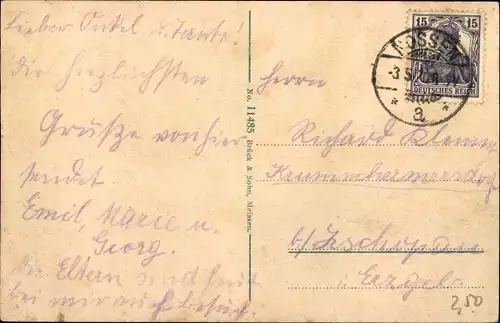 Lieber Onkel u. Tante!
die herzlichsten
Grüße von hier
sendet
Emil, Marie u.
Georg.
die Eltern sind heut
bei mir auch besuch.
No. 11485 Brück & Sohn, Meissen.
15 15
DEUTSCHES REICH
NOSSEN
a
Herrn
Richard
Krummhermersdorf
b/Zschopau
i. Erzgeb.
2,50